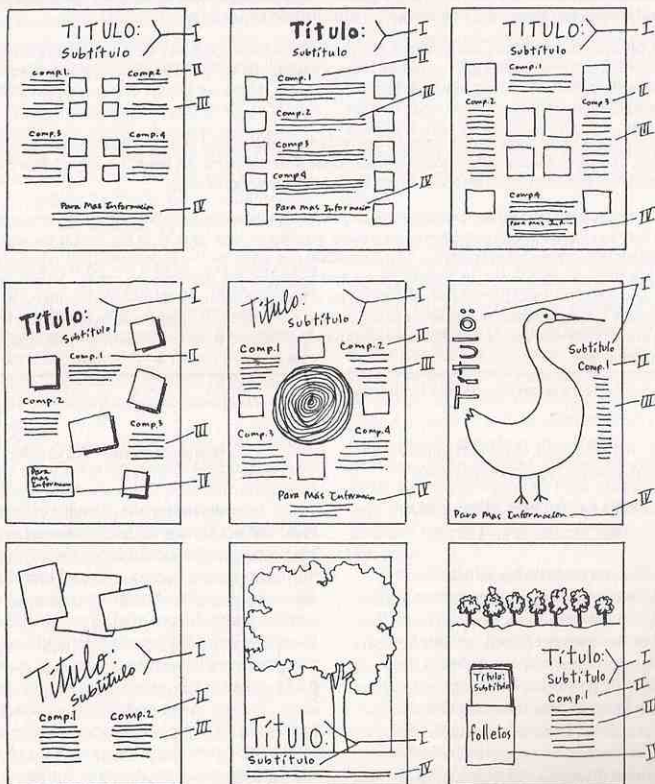 TITULO:
Subtítulo
I
Comp.1
Comp.2
II
III
Comp.3
Comp.4
Para Mas Información
IV
Título:
Subtítulo
I
II
Comp.1
III
Comp.2
Comp3
Comp4
IV
Para mas Información
TITULO:
Subtítulo
I
Comp.1
Comp.2
Comp 3
II
III
Comp4
Para mas Inf.
IV
Título:
Subtítulo
I
Comp.1
II
Comp.2
Comp.3
III
Para
mas
Información
IV
Título:
Subtítulo
I
Comp.1
Comp.2
II
III
Comp.3
Comp.4
Para Mas Información
IV
Título:
I
Subtítulo
Comp.1
II
III
Para Mas Información
IV
Título
Subtítulo
I
Comp.1
Comp.2
II
III
Título:
Subtítulo
I
IV
Título:
Subtítulo
I
Título:
Subtítulo
II
Comp.1
III
folletos
IV